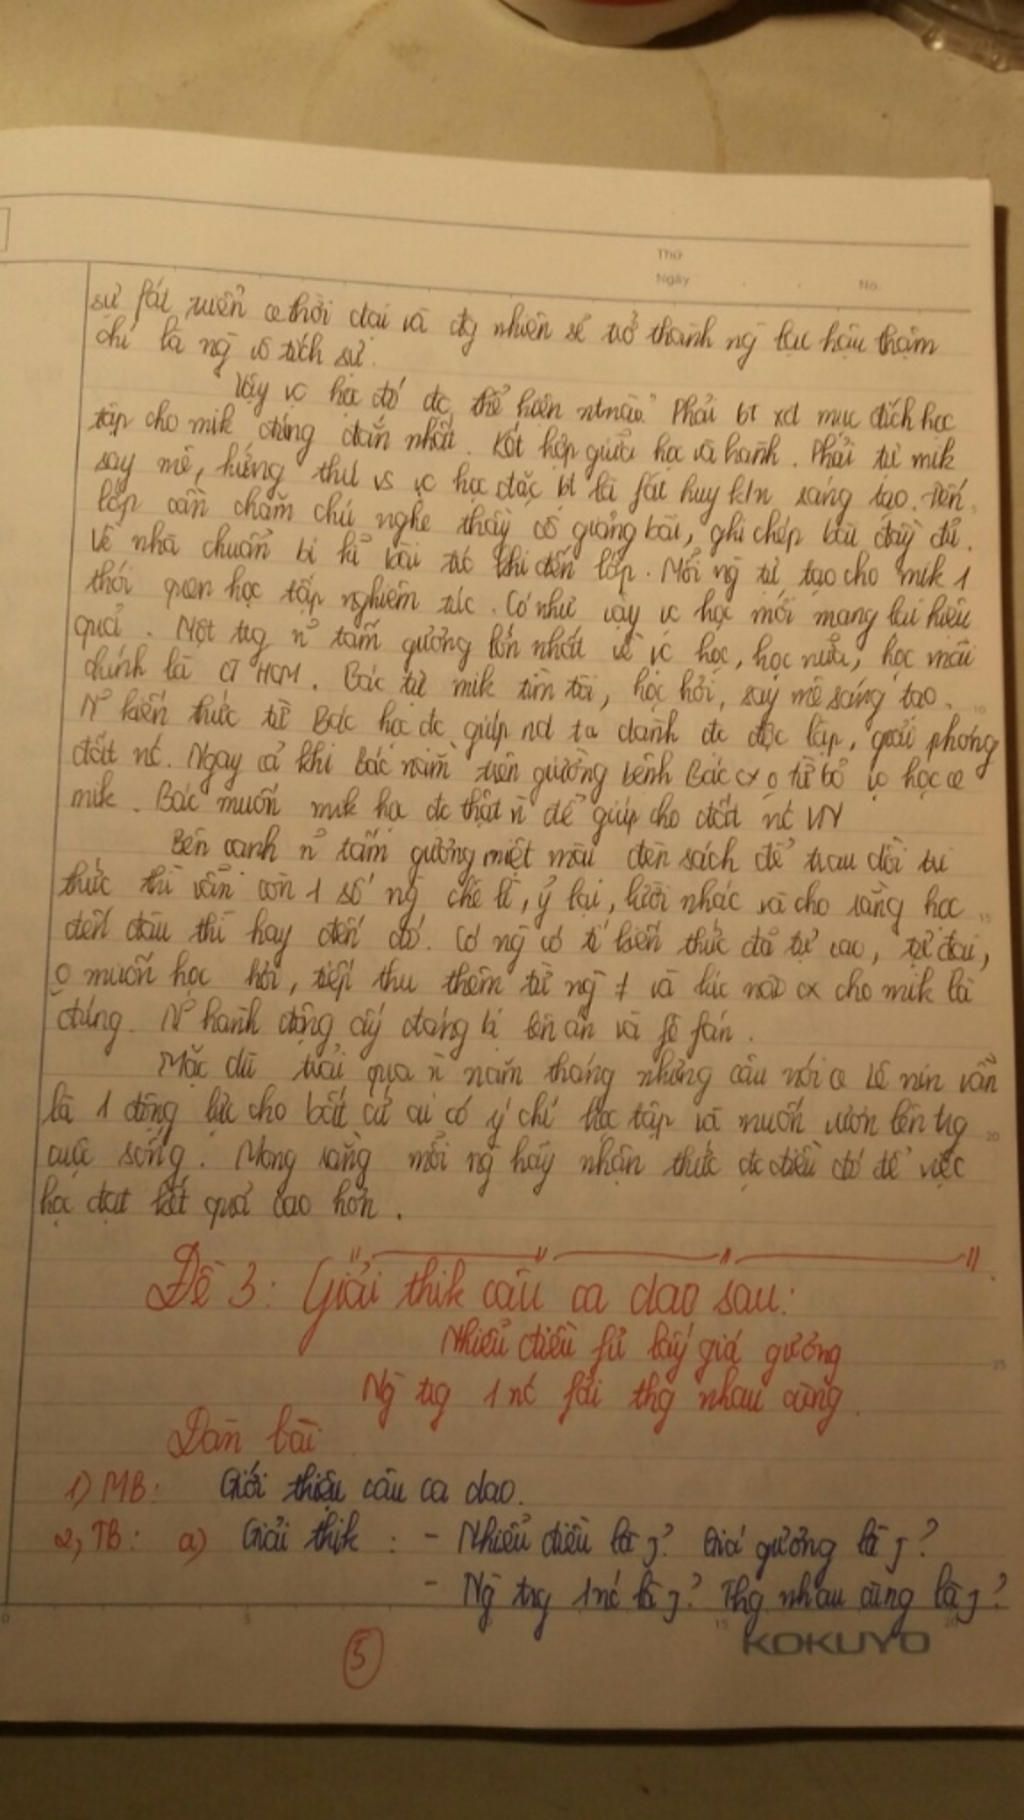 Thứ
Ngày No.
sự fát triển ở thời đại và đg nhiên sẽ trở thành ng lạc hậu thậm
chí là ng vô tích sự.
Vậy vc học đó đc thể hiện ntnào? Phải bt xđ mục đích học
tập cho mik đúng đắn nhất. Kết hợp giữa học và hành. Phải tự mik
say mê, hứng thú vs vc học đặc bt là fát huy k/n sáng tạo. Đến
lớp cần chăm chú nghe thầy cô giảng bài, ghi chép bài đầy đủ.
Về nhà chuẩn bị kĩ bài trc khi đến lớp. Mỗi ng tự tạo cho mik 1
thói quen học tập nghiêm túc. Có như vậy vc học mới mang lại hiệu
quả. Một trg n~ tấm gương lớn nhất về vc học, học nữa, học mãi
chính là CT HCM. Bác tự mik tìm tòi, học hỏi, say mê sáng tạo.
N~ kiến thức từ Bác học đc giúp nd ta dành đc độc lập, giải phóng
đất nc. Ngay cả khi Bác nằm trên giường bệnh Bác cx o từ bỏ vc học
mik. Bác muốn mik học đc thật n` để giúp cho đất nc VN
Bên cạnh n~ tấm gương miệt mài đèn sách để trau dồi tri
thức thì vẫn còn 1 số ng chê lì, ỷ lại, lười nhác và cho rằng học
đến đâu thì hay đến đó. Có ng có tí kiến thức đã tự cao, tự đại,
o muốn học hỏi, tiếp thu thêm từ ng ≠ và lúc nào cx cho mik là
đúng. N~ hành động ấy đáng bị lên án và fê fán.
Mặc dù trải qua n` năm tháng nhưng câu nói Lê nin vẫn
là 1 động lực cho bất cứ ai có ý chí học tập và muốn vươn lên trg
cuộc sống. Mong rằng mỗi ng hãy nhận thức đc điều đó để việc
học đạt kết quả cao hơn.
Đề 3: Giải thik câu ca dao sau:
Nhiễu điều fủ lấy giá gương
Ng trg 1 nc fải thg nhau cùng.
Dàn bài
1) MB: Giới thiệu câu ca dao.
2, TB: a) Giải thik: - Nhiễu điều là j? Giá gương là j?
- Ng trg 1 nc là j? Thg nhau cùng là j?
0 5 15 20
KOKUYO
5